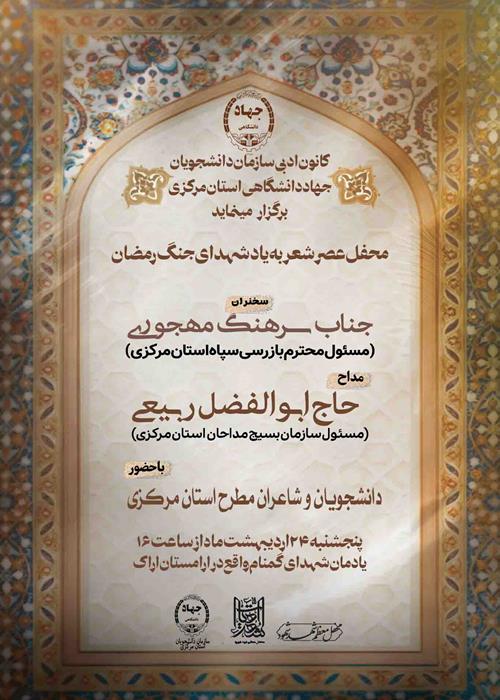 جهاد
دانشگاهی
کانون ادبی سازمان دانشجویان
جهاددانشگاهی استان مرکزی
برگزار مینماید
محفل عصر شعر به یاد شهدای جنگ رمضان
سخنران
جناب سرهنگ مهجوری
(مسئول محترم بازرسی سپاه استان مرکزی)
مداح
حاج ابوالفضل ربیعی
(مسئول سازمان بسیج مداحان استان مرکزی)
باحضور
دانشجویان و شاعران مطرح استان مرکزی
پنجشنبه ۲۴ اردیبهشت ماه از ساعت ۱۶
یادمان شهدای گمنام واقع در ارامستان اراک
جهاد
دانشگاهی
سازمان دانشجویان
استان مرکزی